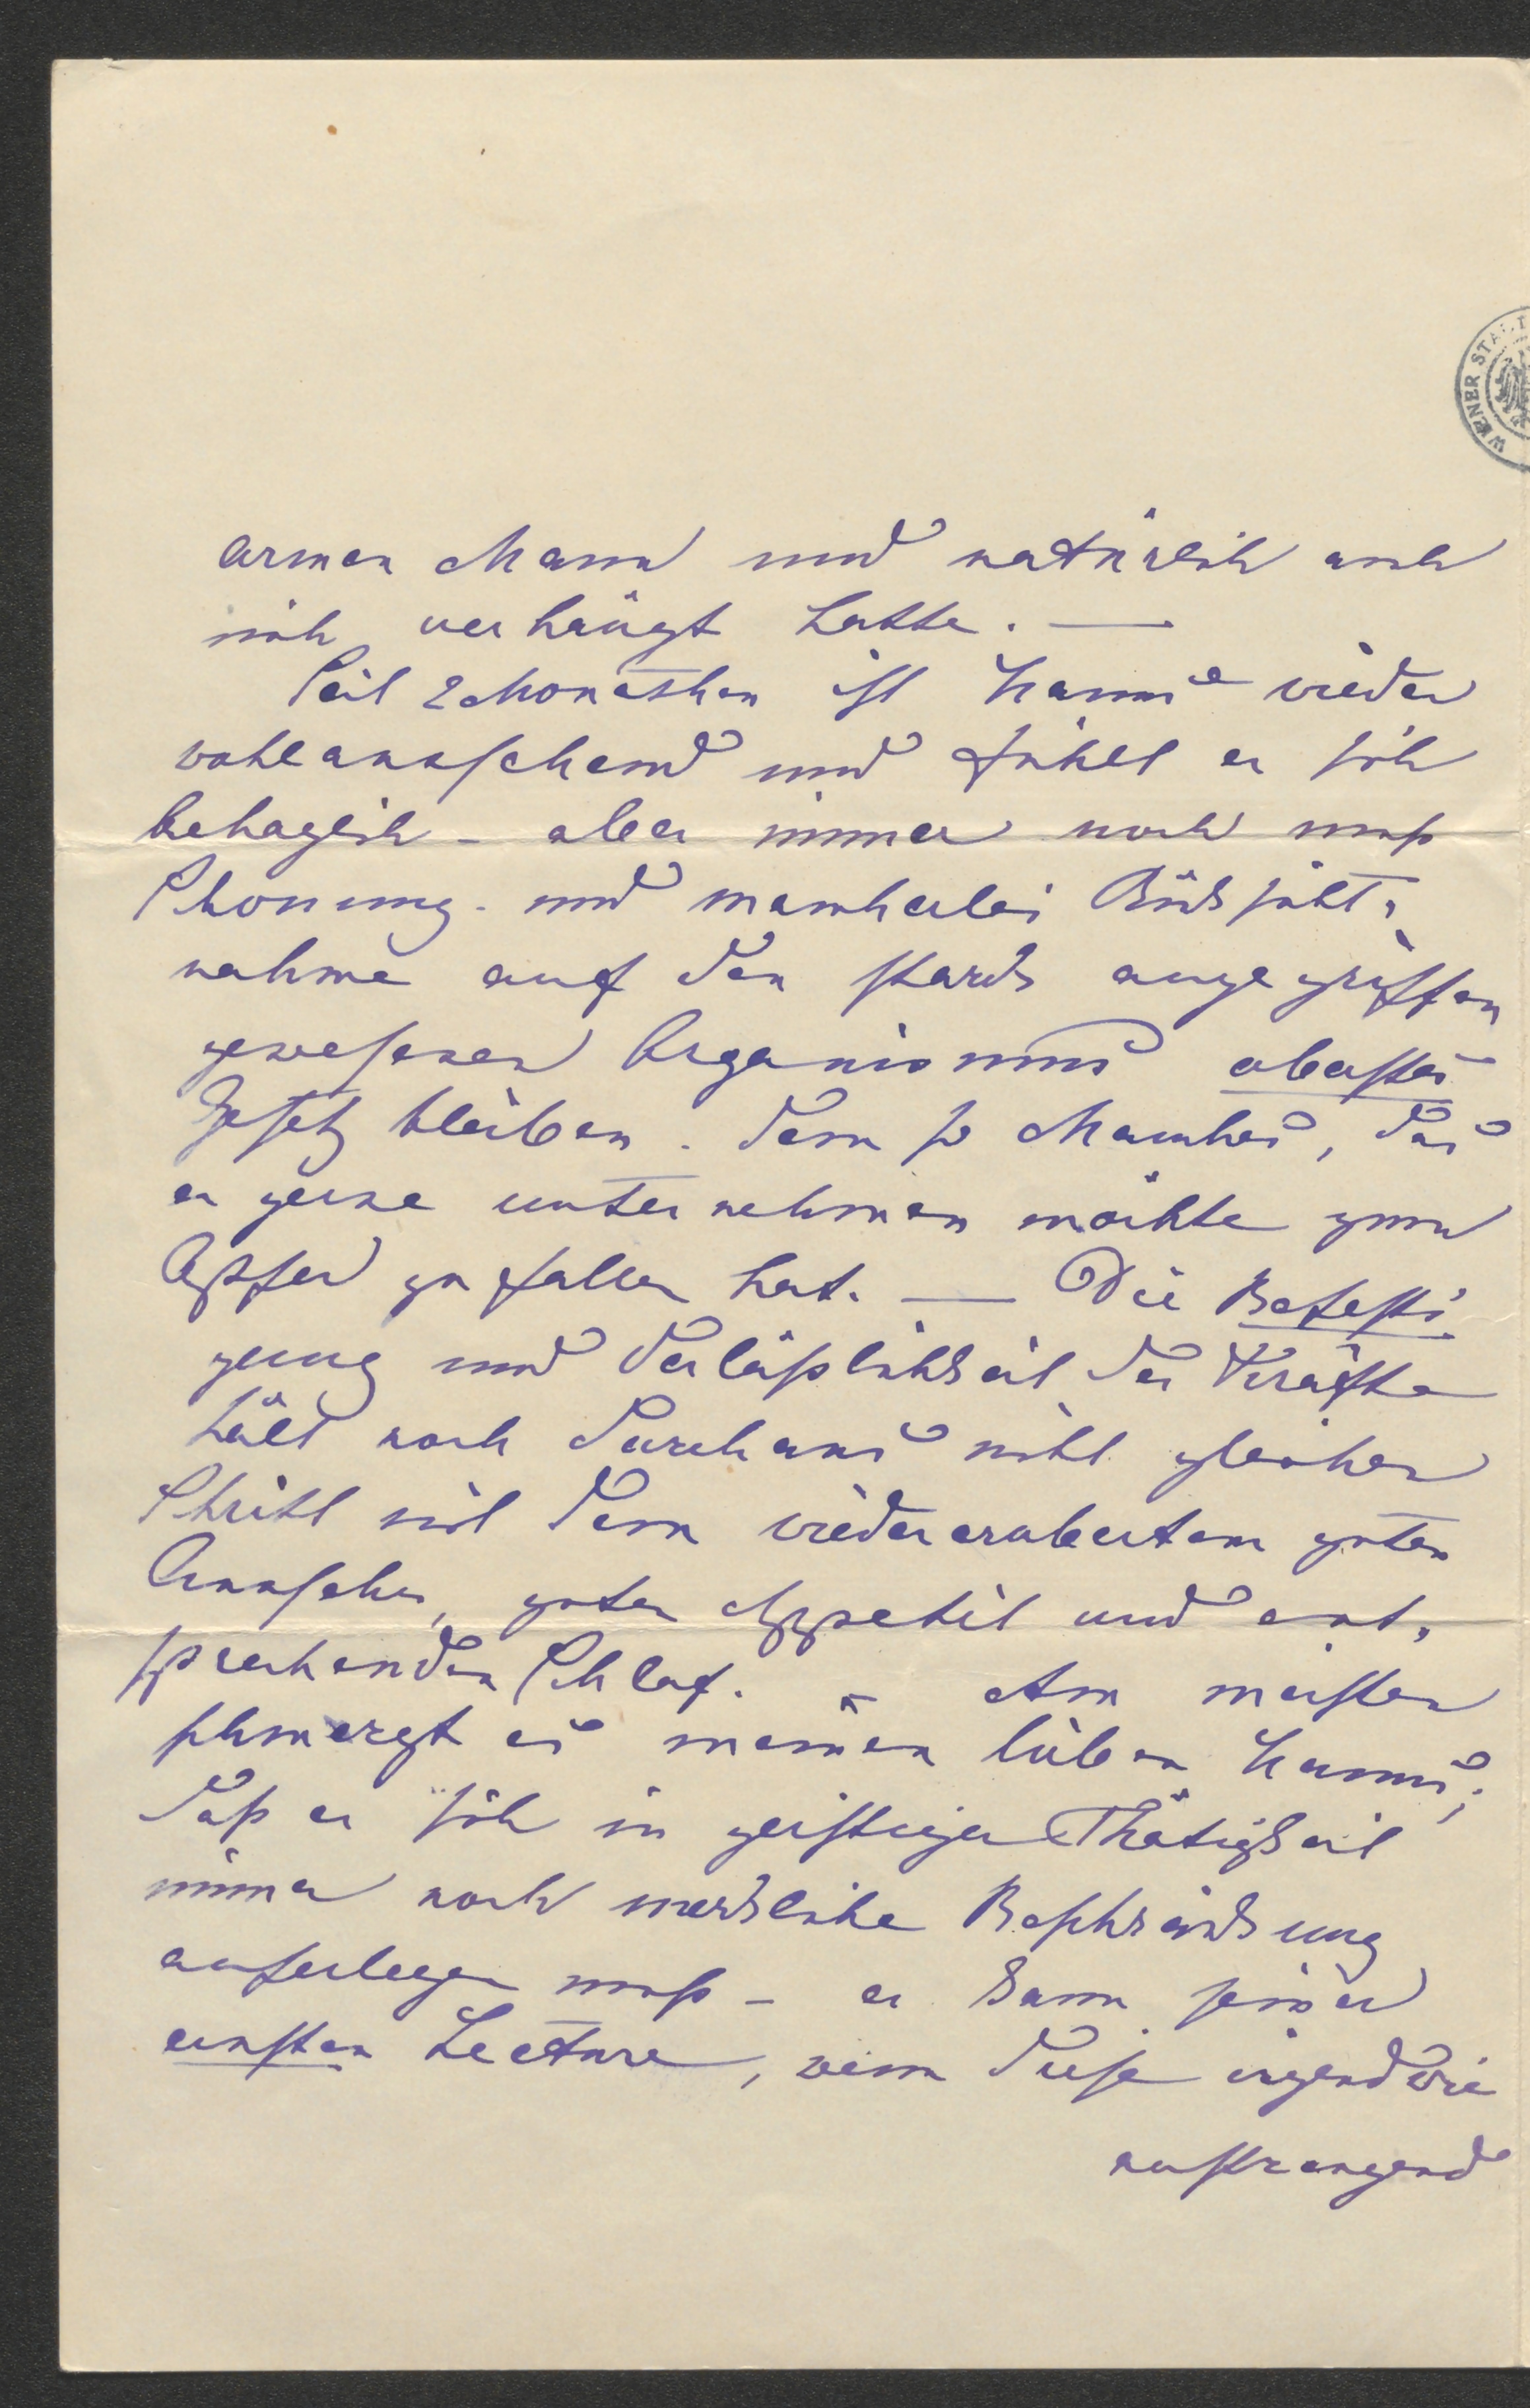 armen Mann und natürlich auch
mich verhängt hatte. —
Seit 2 Monathen ist Hanns wieder
wohlaussehend und fühlt er sich
behaglich – aber immer noch muß
Schonung. und mancherlei Rücksicht-
nahme auf den stark angegriffen
gewesenen Organismus oberstes
Gesetz bleiben. dem so Manches, das
er gerne unternehmen möchte zum
Opfer zu fallen hat. — Die Befesti
gung und Verläßlichkeit der Kräfte
hält noch durchaus nicht gleichen
Schritt mit dem wiedereroberten guten
Aussehen, guten Appetit und ent-
sprechenden Schlaf. – Am meisten
schmerzt es meinen lieben Hanns,
daß er sich in geistiger Thätigkeit
immer noch merkliche Beschränkung
auferlegen muß – er kann seiner
ernsten Lecture, wenn diese irgendwie
anstrengend
WIENER STADT